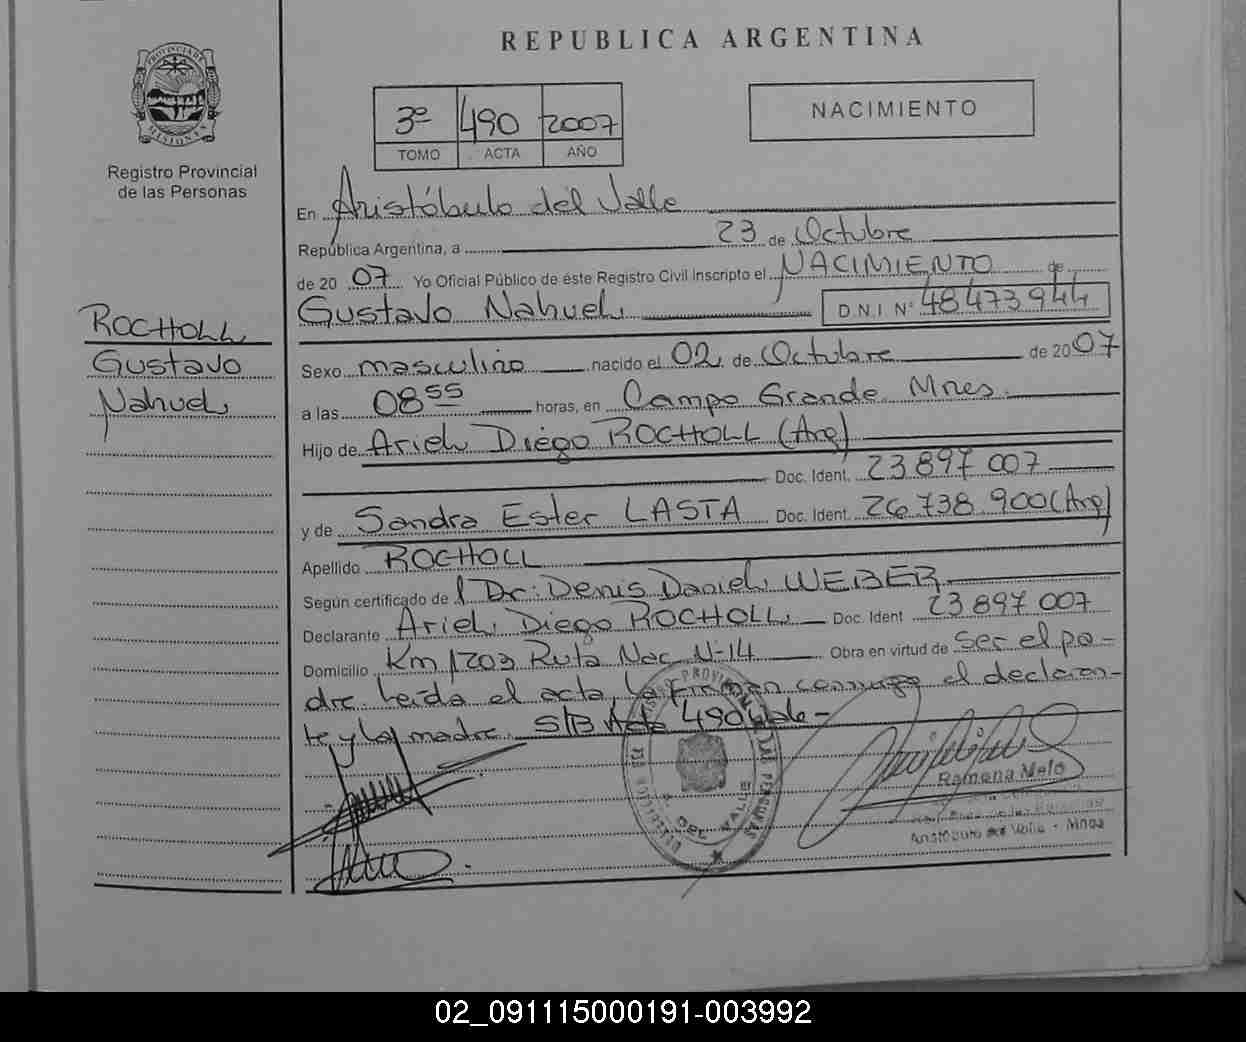 REPUBLICA ARGENTINA
PROVINCIA DE MISIONES
Registro Provincial
de las Personas
3º 490 2007
TOMO ACTA AÑO
NACIMIENTO
En Aristóbulo del Valle
República Argentina, a 23 de Octubre
de 20 07 Yo Oficial Público de éste Registro Civil inscripto el NACIMIENTO de
Gustavo Nahuel D.N.I. Nº 48473944
ROCHOLL
Gustavo
Nahuel
Sexo masculino nacido el 02 de Octubre de 2007
a las 08 55 horas, en Campo Grande Mnes.
Hijo de Ariel Diego ROCHOLL (Arg)
Doc. Ident. 23 897 007
y de Sandra Ester LASTA Doc. Ident. 26.738.900 (Arg)
Apellido ROCHOLL
Según certificado de Dr. Denis Daniel WEBER
Declarante Ariel Diego ROCHOLL Doc. Ident 23 897 007
Domicilio Km 1203 Ruta Nac N-14 Obra en virtud de ser el pa-
dre leída el acta, la firman conmigo el declaran-
te y la madre. S/B Acta 490 Vale-
Ramona Melo
Aristóbulo del Valle - Mnes
DEL VALLE
02_091115000191-003992